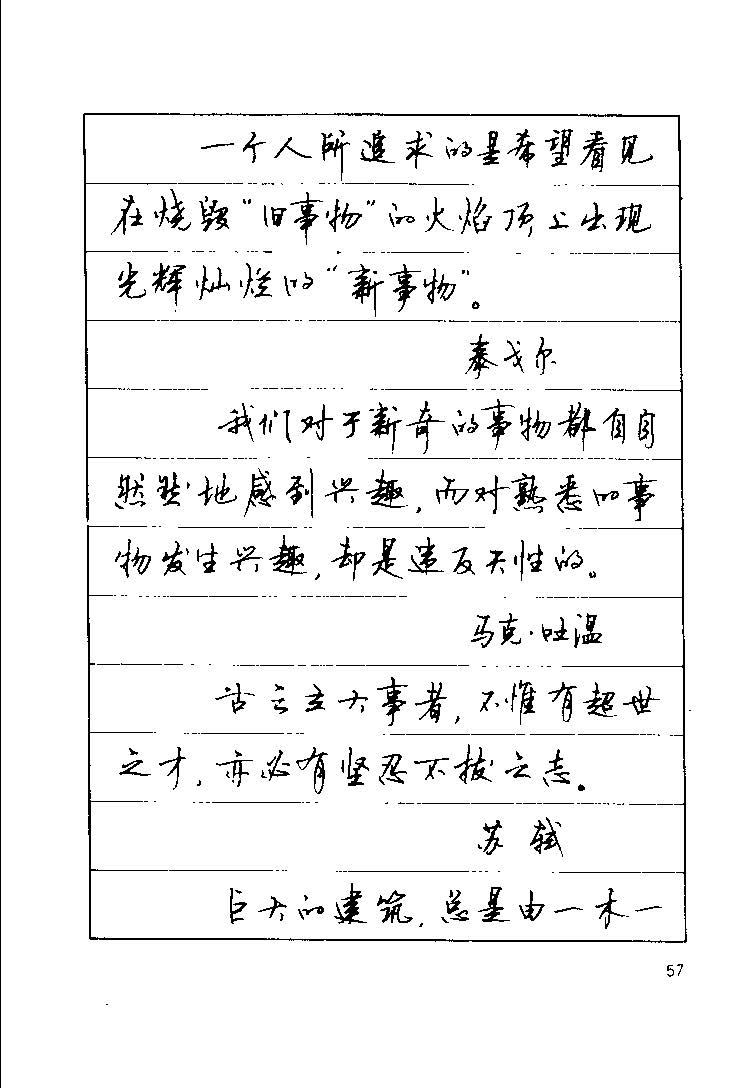 一个人所追求的是希望看见
在烧毁“旧事物”的火焰顶上出现
光辉灿烂的“新事物”。
泰戈尔
我们对于新奇的事物都自自
然然地感到兴趣，而对熟悉的事
物发生兴趣，却是违反天性的。
马克·吐温
古之立大事者，不惟有超世
之才，亦必有坚忍不拔之志。
苏轼
巨大的建筑，总是由一木一
57